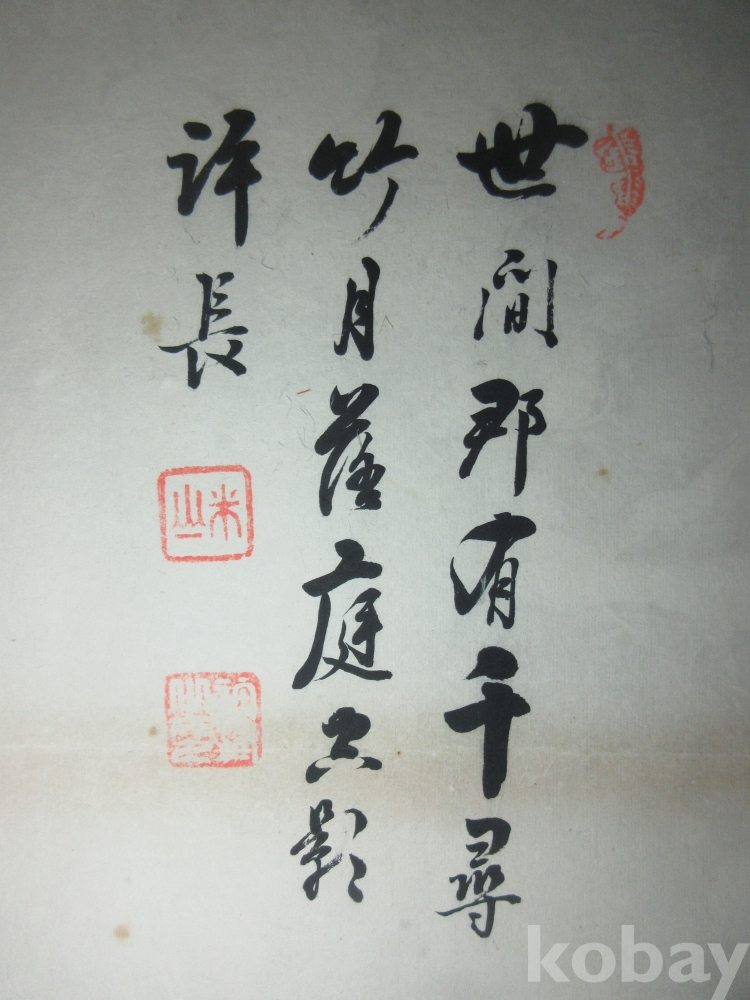 世間那有千尋
竹月落庭空影
許長
米山
kobay